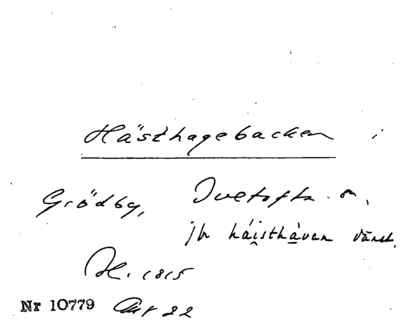 Hästhagebacken i
Grödby, Ivetofta sn,
jfr háisthávan vänst.
H. 1815
Nr 10779 Akt 22